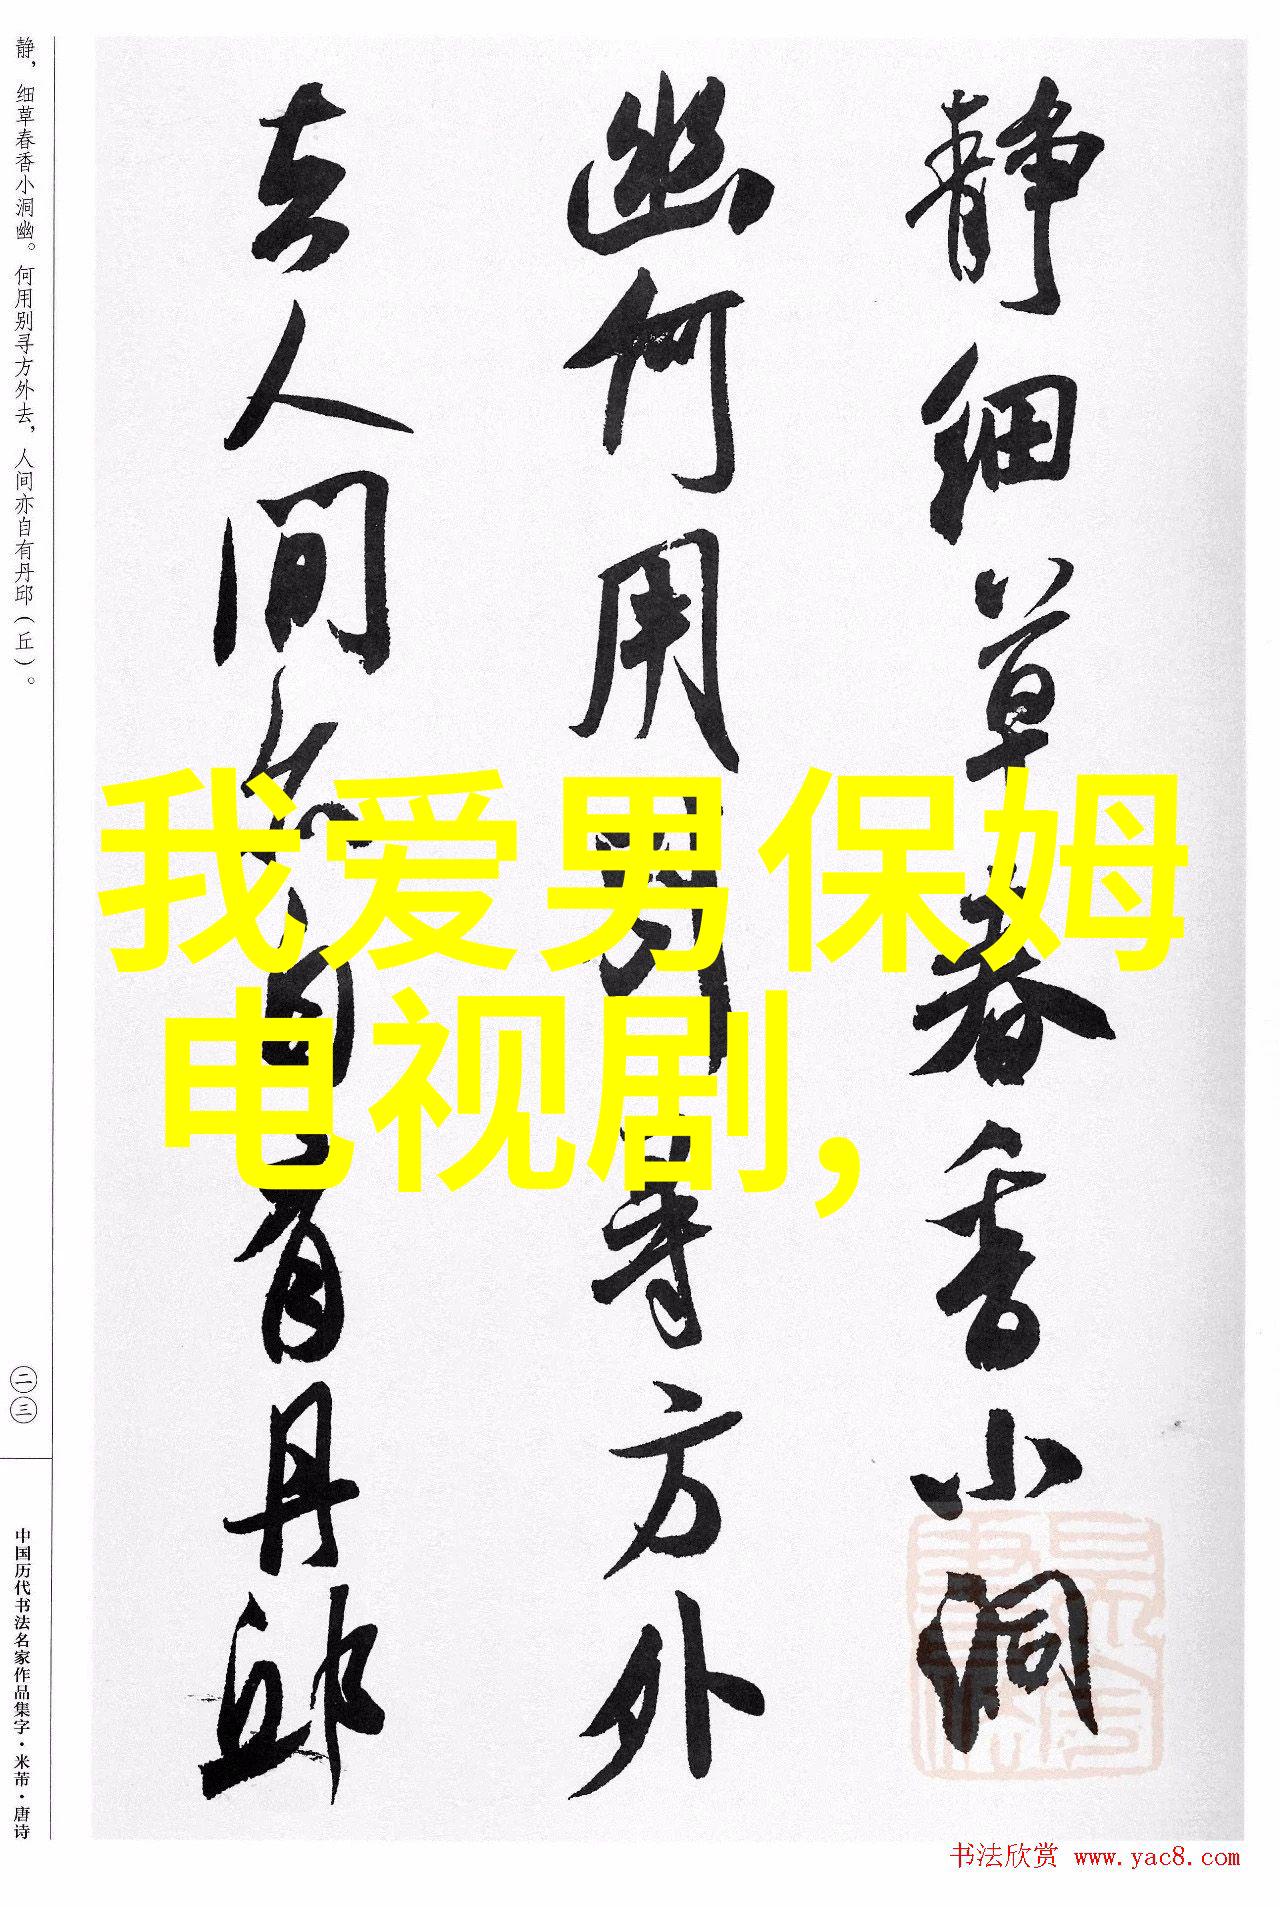 静细草春香小洞
幽何用别寻方外
去人间亦自有丹邱
静，细草春香小洞幽。何用别寻方外去，人间亦自有丹邱（丘）。
二三
中国历代书法名家作品集字·米芾·唐诗
我爱男保姆
电视剧，
书法欣赏 www.yac8.com